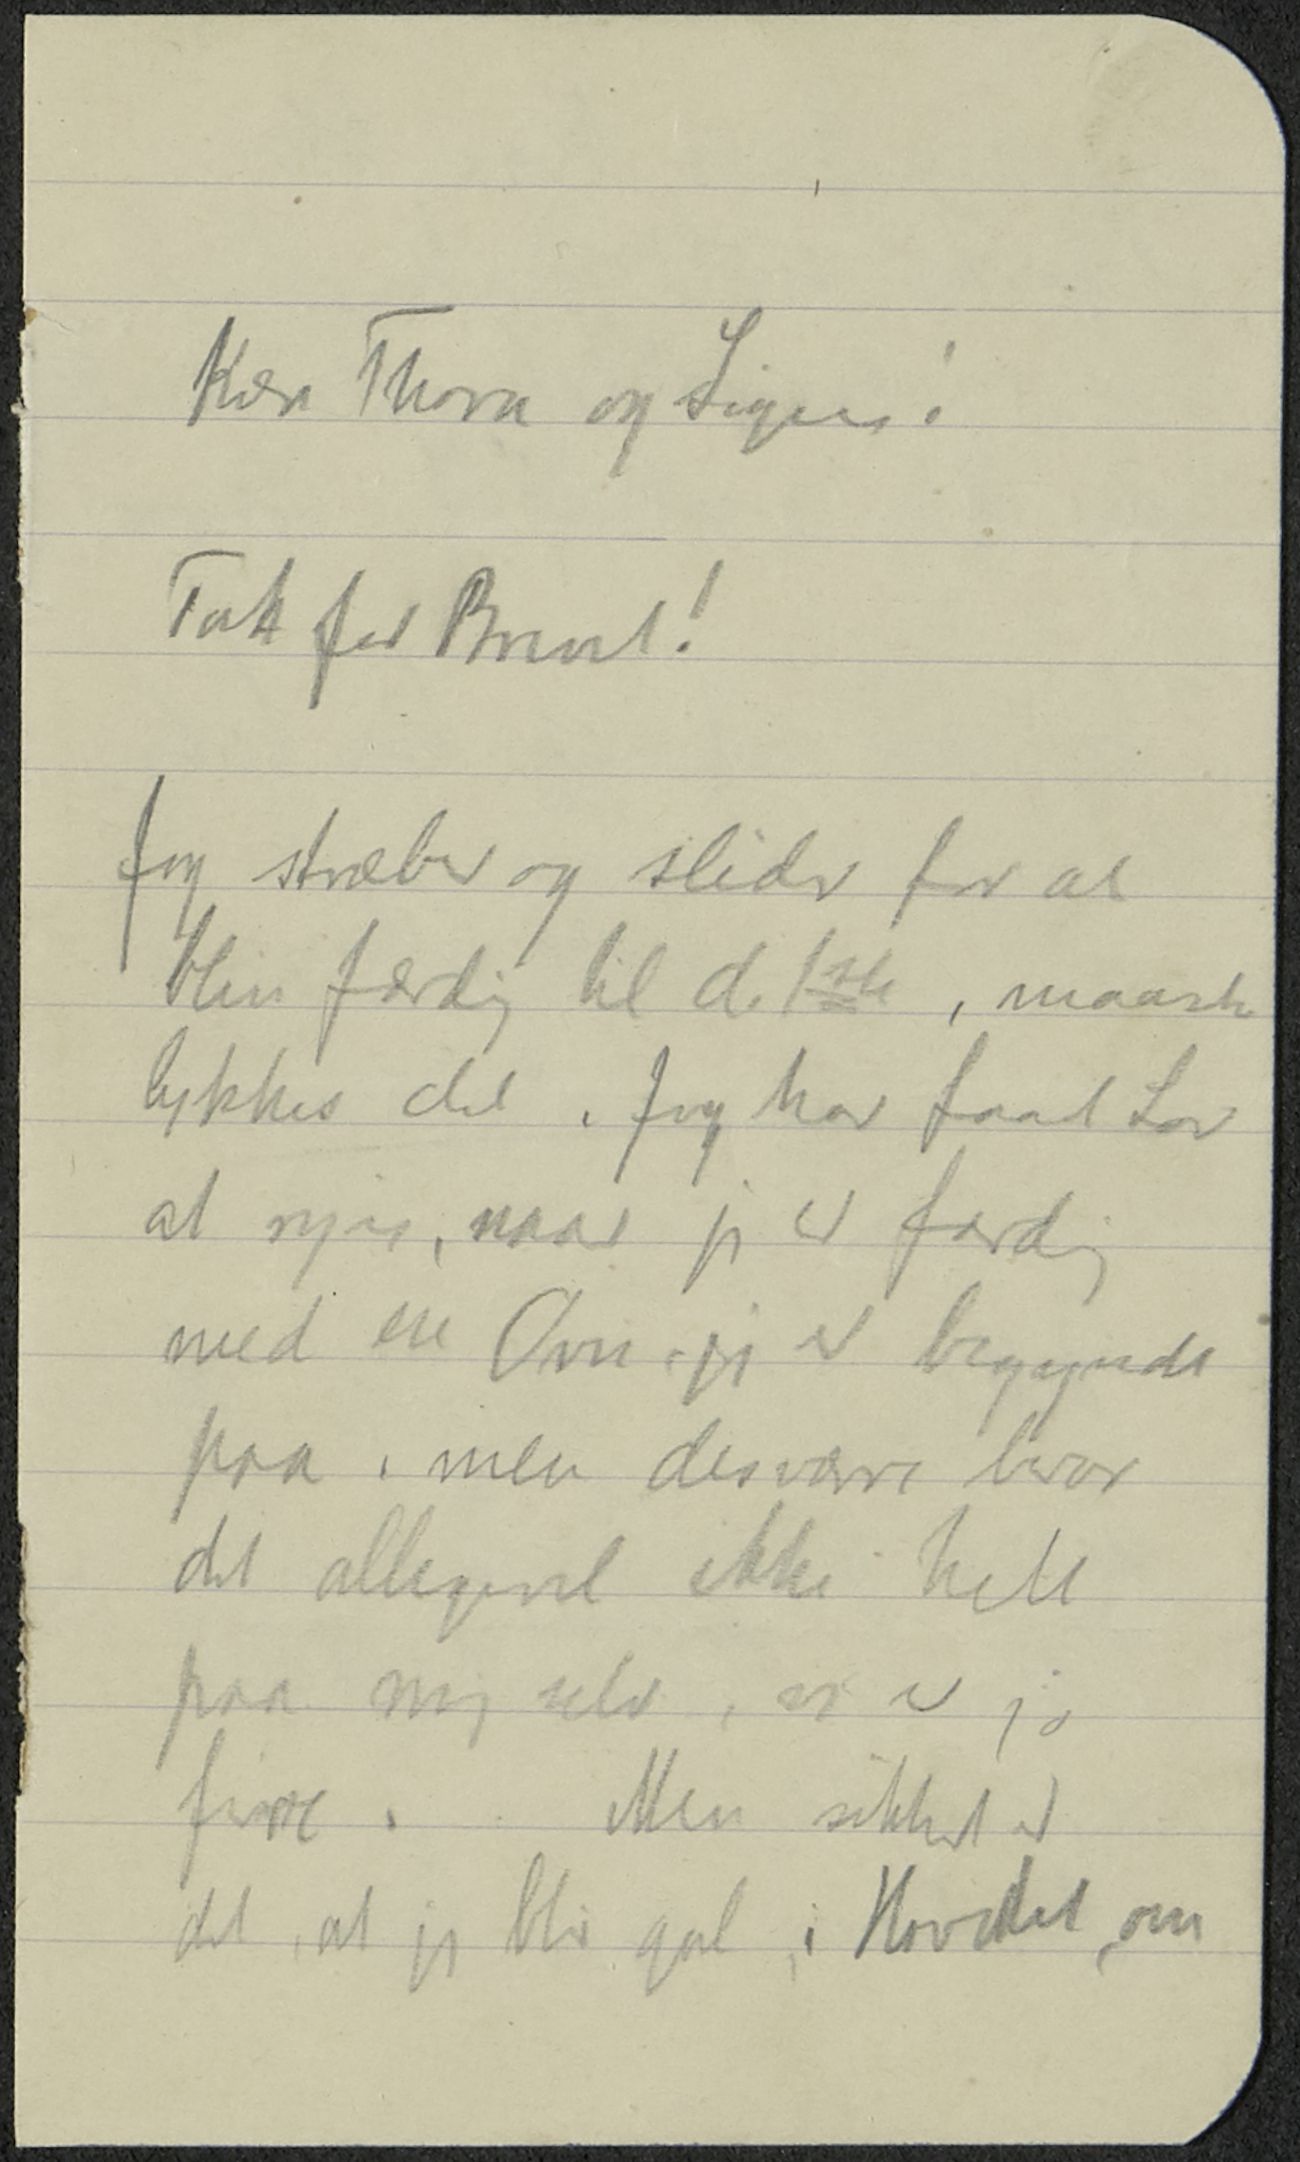 Kære Thora og Signe!
Tak for Brevet!
Jeg stræber og slider for at
blive færdig til d. 1ste, maaske
lykkes det. Jeg har faaet Lov
at rejse, naar jeg er færdig
med en Ovn jeg er begyndt
paa, men desværre beror
det alligevel ikke helt
paa mig selv, vi er jo
firre. Men sikkert er
det, at jeg blir gal i Hovedet, om